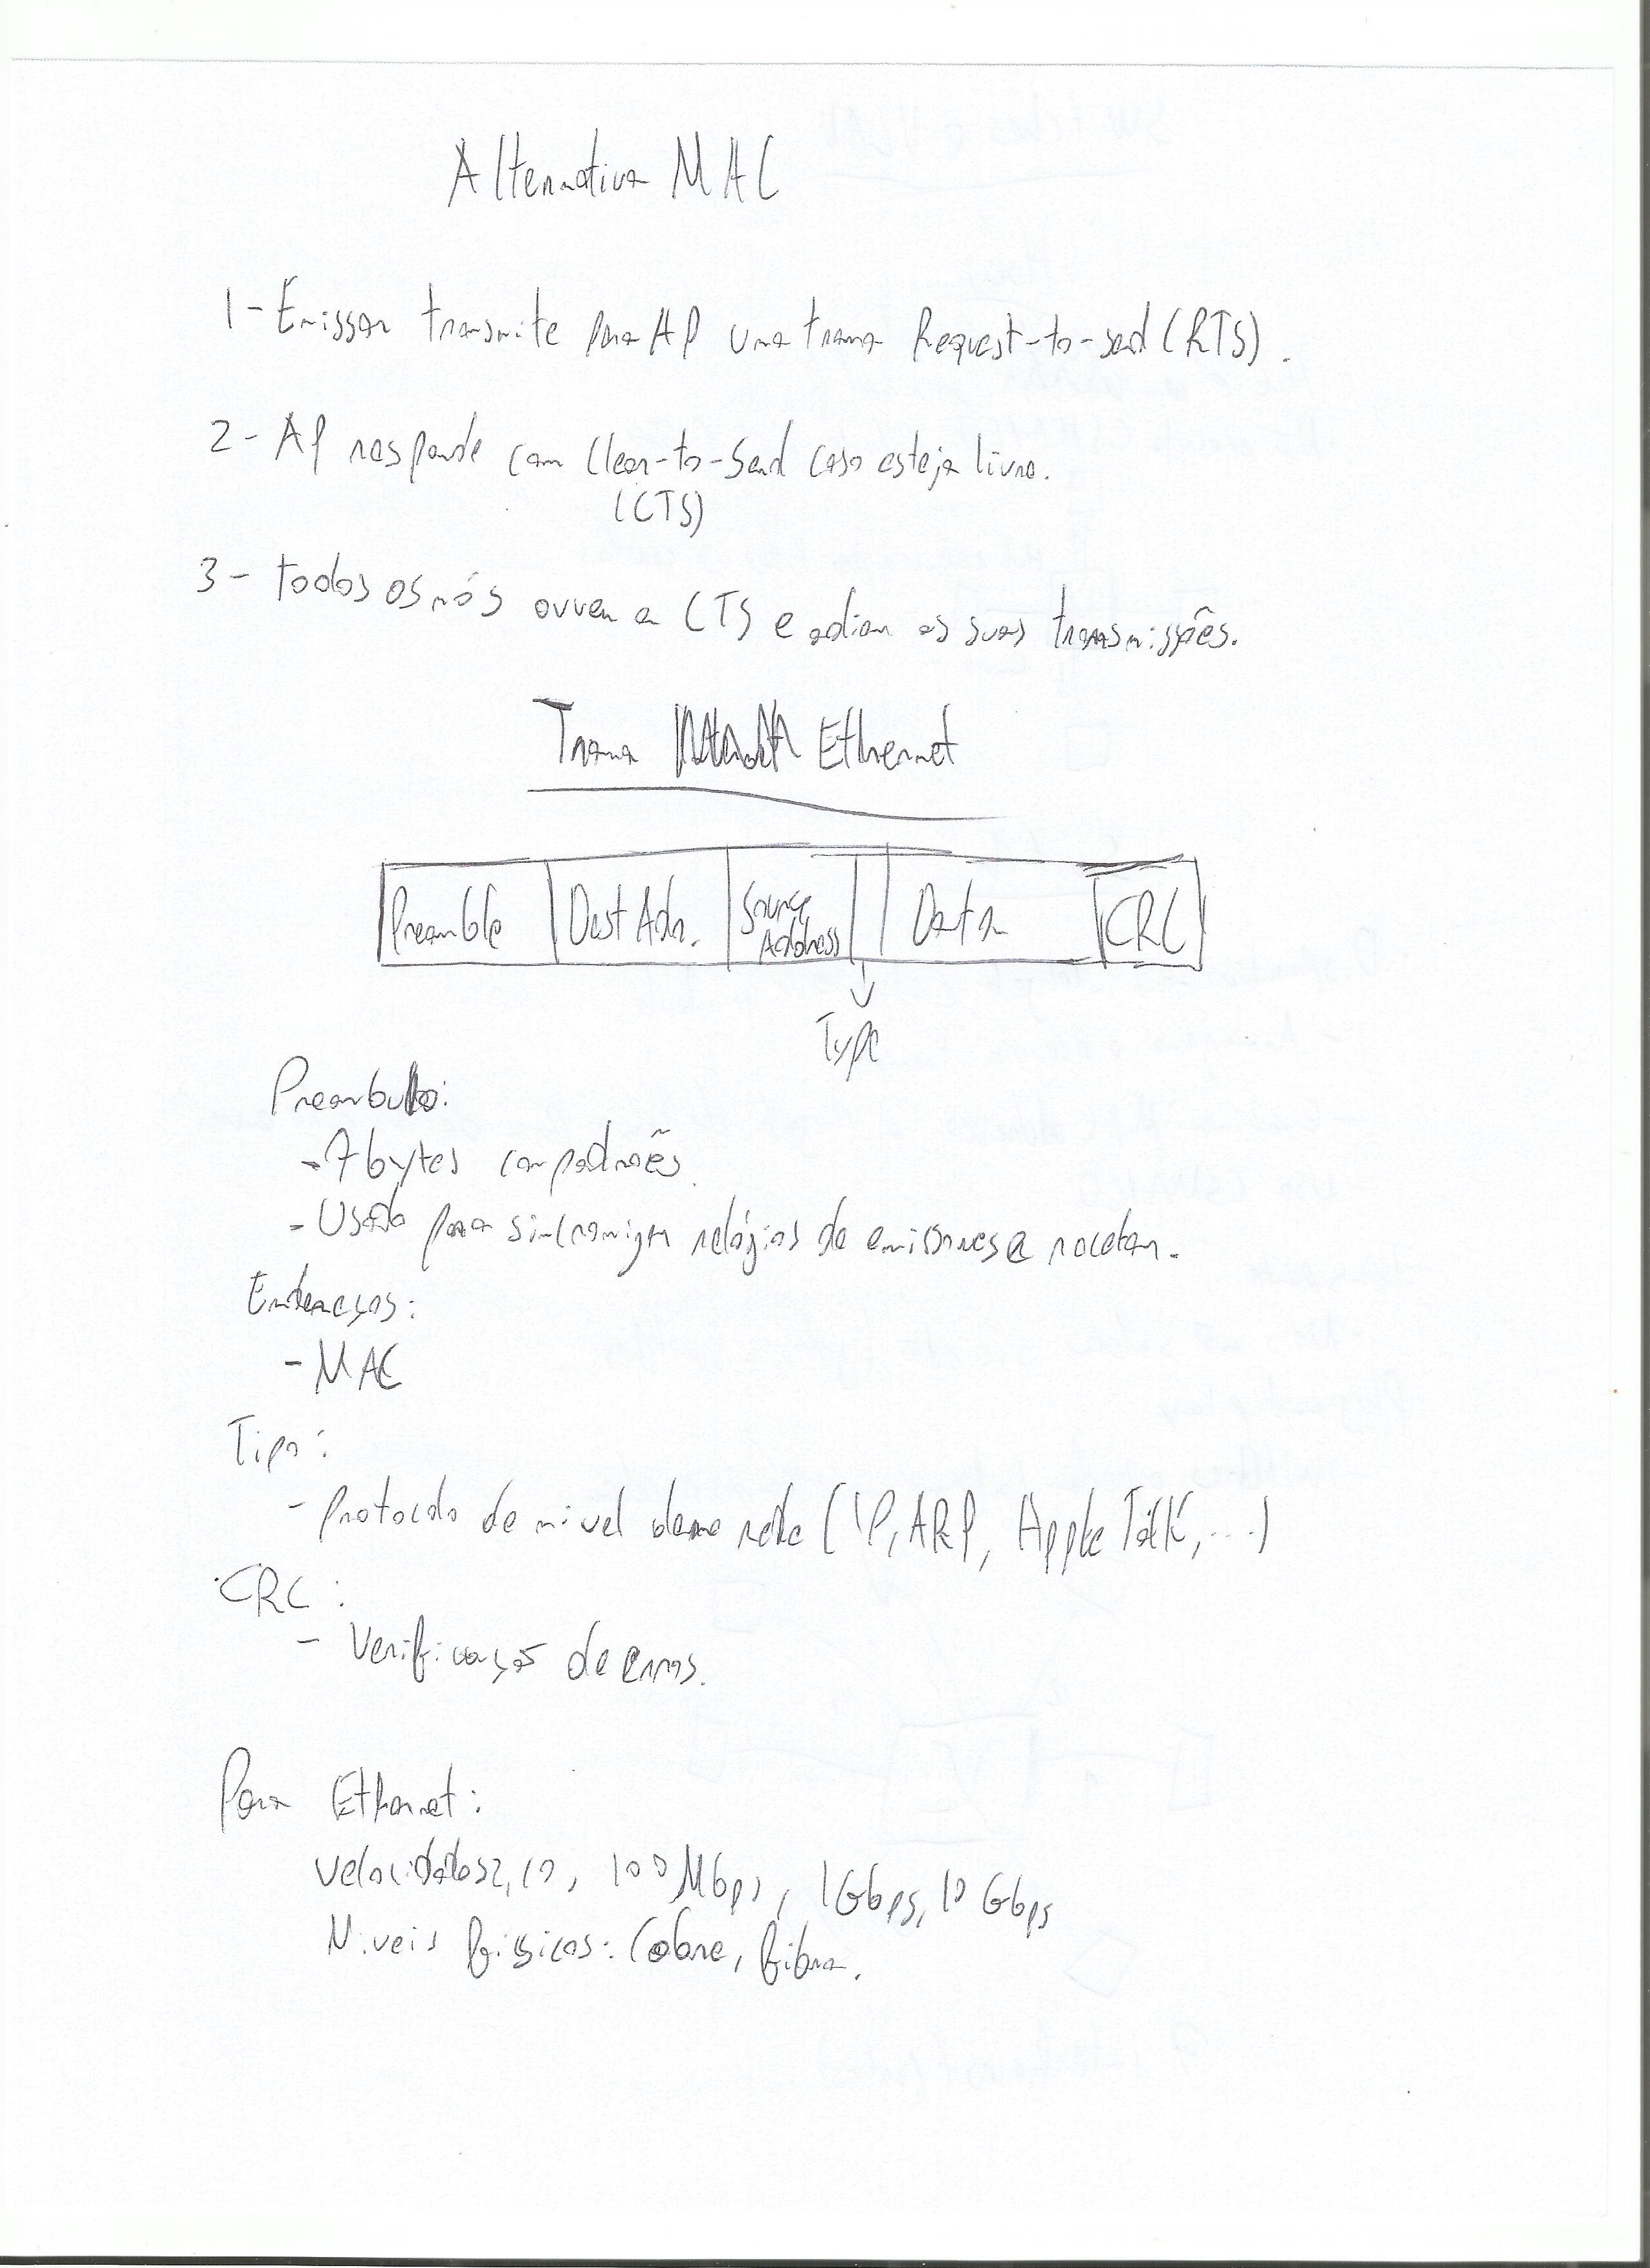 Alternativa MAC
1 - Emissor transmite para AP uma trama Request-to-send (RTS).
2 - AP responde com Clear-to-Send caso esteja livre.
(CTS)
3 - todos os nós ouvem a CTS e adiam as suas transmissões.
Trama Ethernet
Preamble Dest Adr. Source Address Data CRC
Type
Preambulo:
- 7 bytes com padrões.
- Usado para sincronizar relógios de emissores e recetor.
Endereços:
- MAC
Tipo:
- protocolo de nível de rede (IP, ARP, Apple Talk, ...)
CRC:
- Verificação de erros.
Para Ethernet:
Velocidades 2, 10, 100 Mbps, 1 Gbps, 10 Gbps
Níveis físicos: Cobre, fibra.